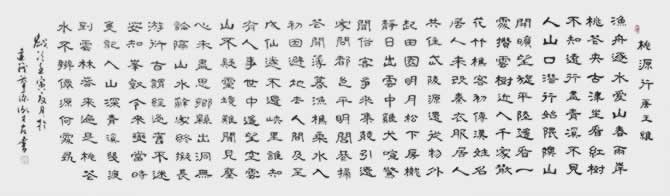 桃源行唐王維
漁舟逐水愛山春兩岸
桃花夾古津坐看紅樹
不知遠行盡青溪不見
人山口潛行始隈隩山
開曠望旋平陸遙看一
處攢雲樹近入千家散
花竹樵客初傳漢姓名
居人未改秦衣服居人
共住武陵源還從物外
起田園明月松下房櫳
靜日出雲中雞犬喧驚
聞俗客爭來集競引還
家問都邑平明閭巷掃
花開薄暮漁樵乘水入
初因避地去人間及至
成仙遂不還峽裏誰知
有人事世中遙望空雲
山不疑靈境難聞見塵
心未盡思鄉縣出洞無
論隔山水辭家終擬長
游衍自謂經過舊不迷
安知峰壑今來變當時
只記入山深青溪幾度
到雲林春來遍是桃花
水不辨仙源何處尋
歲次壬寅夏月於
書